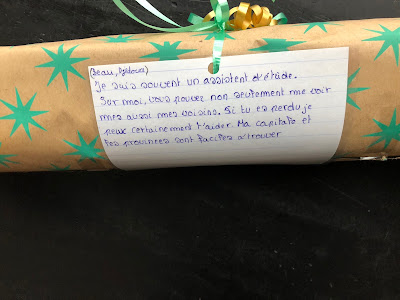 Je suis souvent un assistent d'étude.
Sur moi, vous pouvez non seulement me voir
mes aussi mes voisins. Si tu es perdu je
peux certainement t'aider. Ma capitale et
les provinces sont faciles a trouver